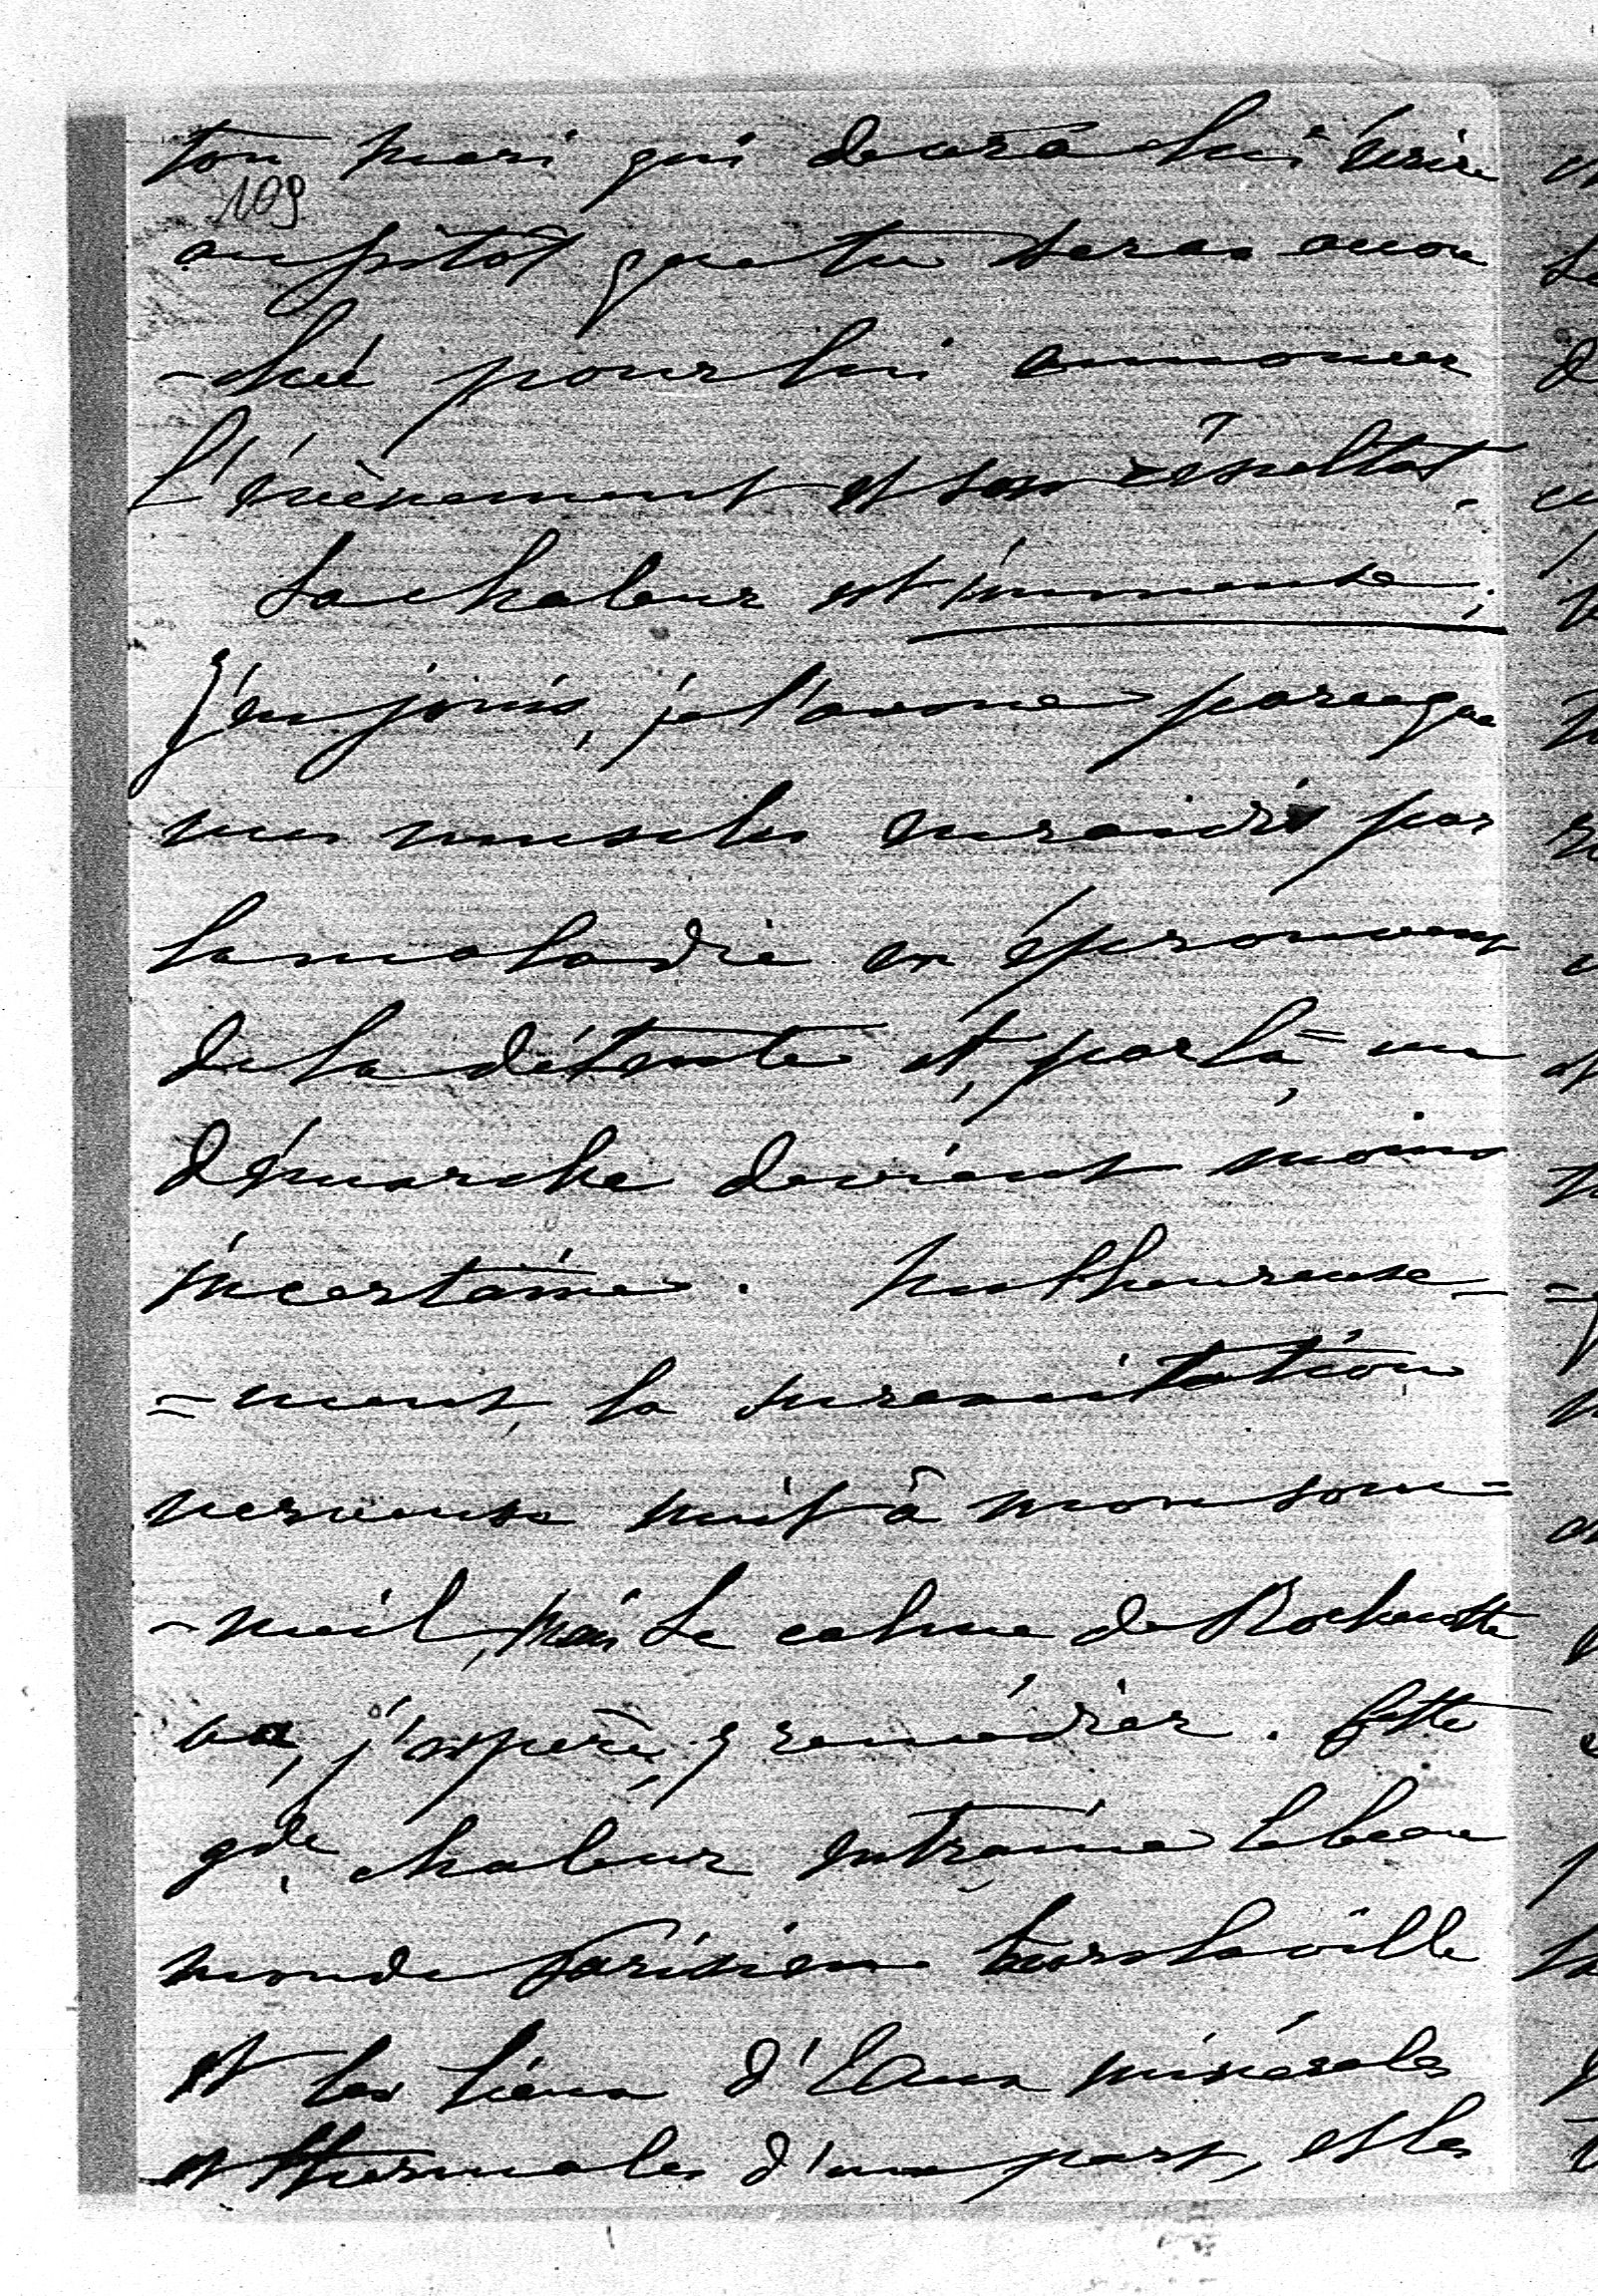 ton mari qui devra lui écrire
109
aussitôt que tu seras accou
-chée pour lui annoncer
l'évènement et son résultat.
La chaleur est immense;
j'en jouis, je l'avoue parceque
mes muscles enraidis par
la maladie en éprouvent
de la détente et, par là, ma
démarche devient moins
incertaine. Malheureuse-
=ment, la surexcitation
nerveuse nuit à mon som-
-meil, mais le calme de Rochecotte
va, j'espère, y remédier. Cette
gde chaleur entraîne le beau
monde Parisien hors la ville
et les lieux d'Eaux minérales
et thermales d'une part, et les